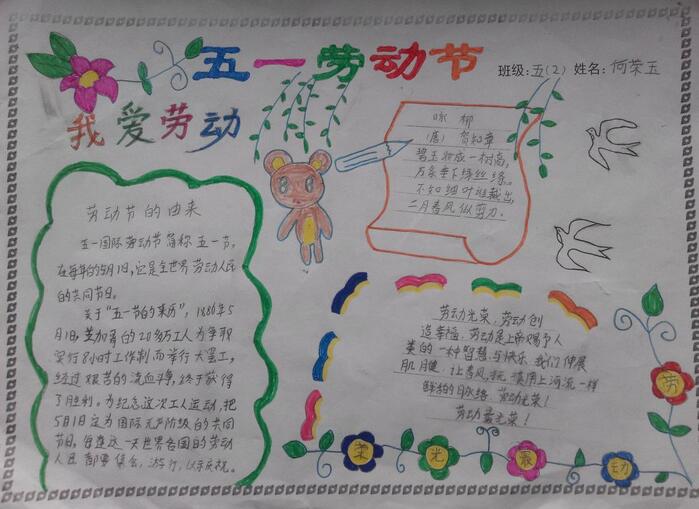 五一劳动节
班级:五(2) 姓名:何荣玉
我爱劳动
劳动节的由来
五一国际劳动节简称五一节,
在每年的5月1日,它是全世界劳动人民
的共同节日。
关于“五一节的来历”,1886年5
月1日,芝加哥的20多万工人为争取
实行8小时工作制而举行大罢工,
经过艰苦的流血斗争,终于获得
了胜利。为纪念这次工人运动,把
5月1日定为国际无产阶级的共同
节日。每逢这一天世界各国的劳动
人民都要集会,游行,以示庆祝。
咏柳
(唐)贺知章
碧玉妆成一树高,
万条垂下绿丝绦。
不知细叶谁裁出,
二月春风似剪刀。
劳动光荣,劳动创
造幸福,劳动是上帝赐予人
类的一种智慧与快乐,我们伸展
肌腱,让春风抚摸周上河流一样
鲜活的脉络,劳动光荣!
劳动最光荣!
劳
动
最
光
荣